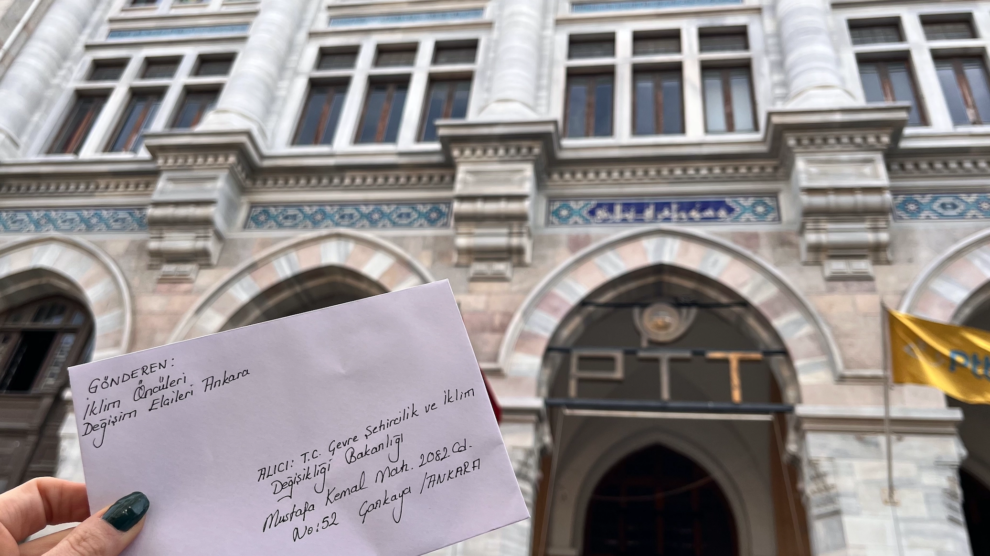 GÖNDEREN:
İklim Öncüleri
Değişim Elçileri Ankara
ALICI: T.C. Çevre Şehircilik ve İklim
Değişikliği Bakanlığı
Mustafa Kemal Mah. 2082 Cd.
No:52 Çankaya / ANKARA
PTT